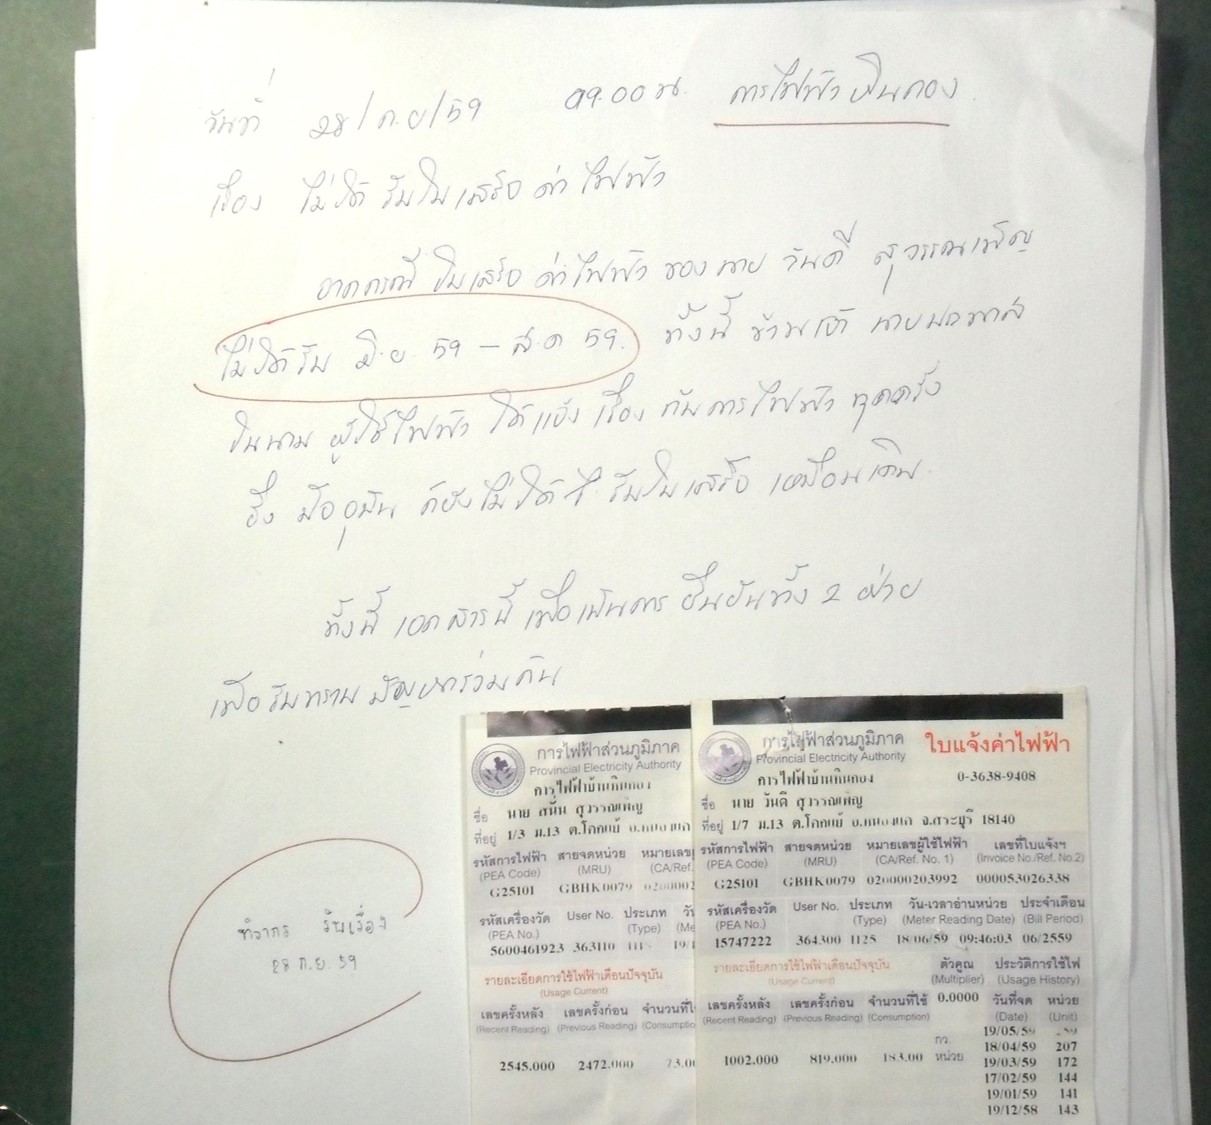 วันที่ 28/ก.ย/59 09.00 น. การไฟฟ้าหินกอง
เรื่อง ไม่ได้รับใบเสร็จ ค่าไฟฟ้า
จากกรณี ใบเสร็จ ค่าไฟฟ้า ของ นาย วันดี สุวรรณเพ็ญ
ไม่ได้รับ มิ.ย. 59 – ส.ค 59. ทั้งนี้ ข้าพเจ้า นาย
ในนาม ผู้ใช้ไฟฟ้า ได้แจ้ง เรื่อง กับการไฟฟ้า ทุกครั้ง
ซึ่ง ปัจจุบัน ก็ยังไม่ได้ รับใบเสร็จ เหมือนเดิม
ทั้งนี้ เอกสารนี้ เพื่อเป็นการ ยืนยันทั้ง 2 ฝ่าย
เพื่อรับทราบ ปัญหาร่วมกัน
รับเรื่อง
28 ก.ย. 59
การไฟฟ้าส่วนภูมิภาค
Provincial Electricity Authority
การไฟฟ้าบ้านหินกอง
ชื่อ นาย สนั่น สุวรรณเพ็ญ
ที่อยู่ 1/3 ม.13 ต.โคกแย้ อ.หนองแค
รหัสการไฟฟ้า สายจดหน่วย หมายเลข
(PEA Code) (MRU) (CA/Ref.
G25101 GBHK0079
รหัสเครื่องวัด User No. ประเภท
(PEA No.) (Type)
5600461923 363110
รายละเอียดการใช้ไฟฟ้าเดือนปัจจุบัน
(Usage Current)
เลขครั้งหลัง เลขครั้งก่อน จำนวนที่ใ
(Recent Reading) (Previous Reading) (Consumptio
2545.000 2472.000
การไฟฟ้าส่วนภูมิภาค ใบแจ้งค่าไฟฟ้า
Provincial Electricity Authority
การไฟฟ้าบ้านหินกอง 0-3638-9408
ชื่อ นาย วันดี สุวรรณเพ็ญ
ที่อยู่ 1/7 ม.13 ต.โคกแย้ อ.หนองแค จ.สระบุรี 18140
รหัสการไฟฟ้า สายจดหน่วย หมายเลขผู้ใช้ไฟฟ้า เลขที่ใบแจ้งฯ
(PEA Code) (MRU) (CA/Ref. No. 1) (Invoice No./Ref. No.2)
G25101 GBHK0079 020000203992 000053026338
รหัสเครื่องวัด User No. ประเภท วัน-เวลาอ่านหน่วย ประจำเดือน
(PEA No.) (Type) (Meter Reading Date) (Bill Period)
15747222 364300 1125 18/06/59 09:46:03 06/2559
รายละเอียดการใช้ไฟฟ้าเดือนปัจจุบัน ตัวคูณ ประวัติการใช้ไฟ
(Usage Current) (Multiplier) (Usage History)
เลขครั้งหลัง เลขครั้งก่อน จำนวนที่ใช้ 0.0000 วันที่จด หน่วย
(Recent Reading) (Previous Reading) (Consumption) (Date) (Unit)
19/05/59
กว. 18/04/59 207
1002.000 819.000 183.00 หน่วย 19/03/59 172
17/02/59 144
19/01/59 141
19/12/58 143